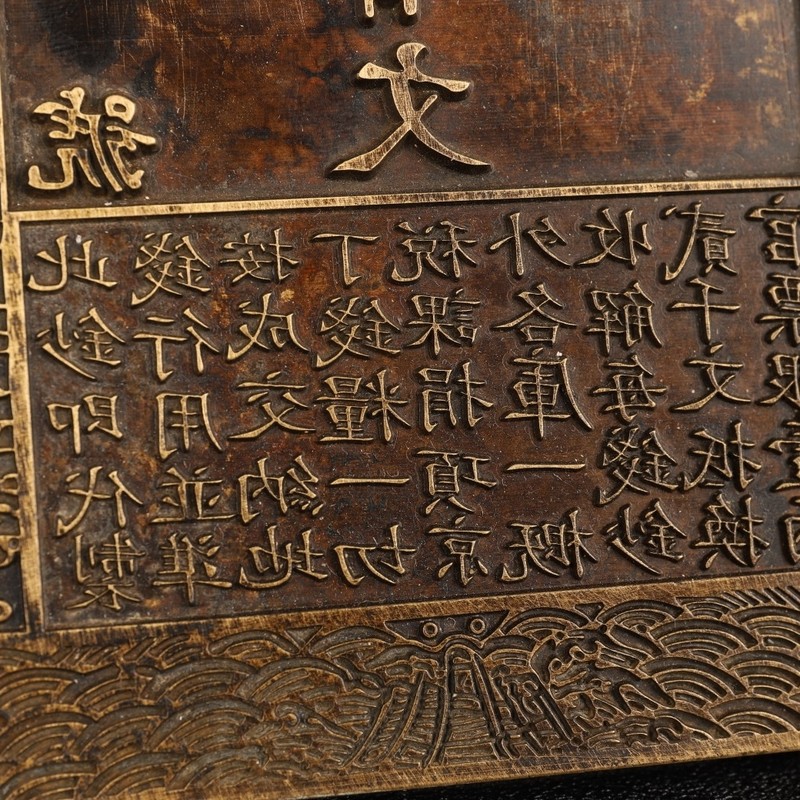 號
文
此鈔即代製
錢行用並準
按成交納地
丁錢糧一切
税課捐項京
外各庫一概
收解每錢鈔
貳千文抵換
官票銀壹兩